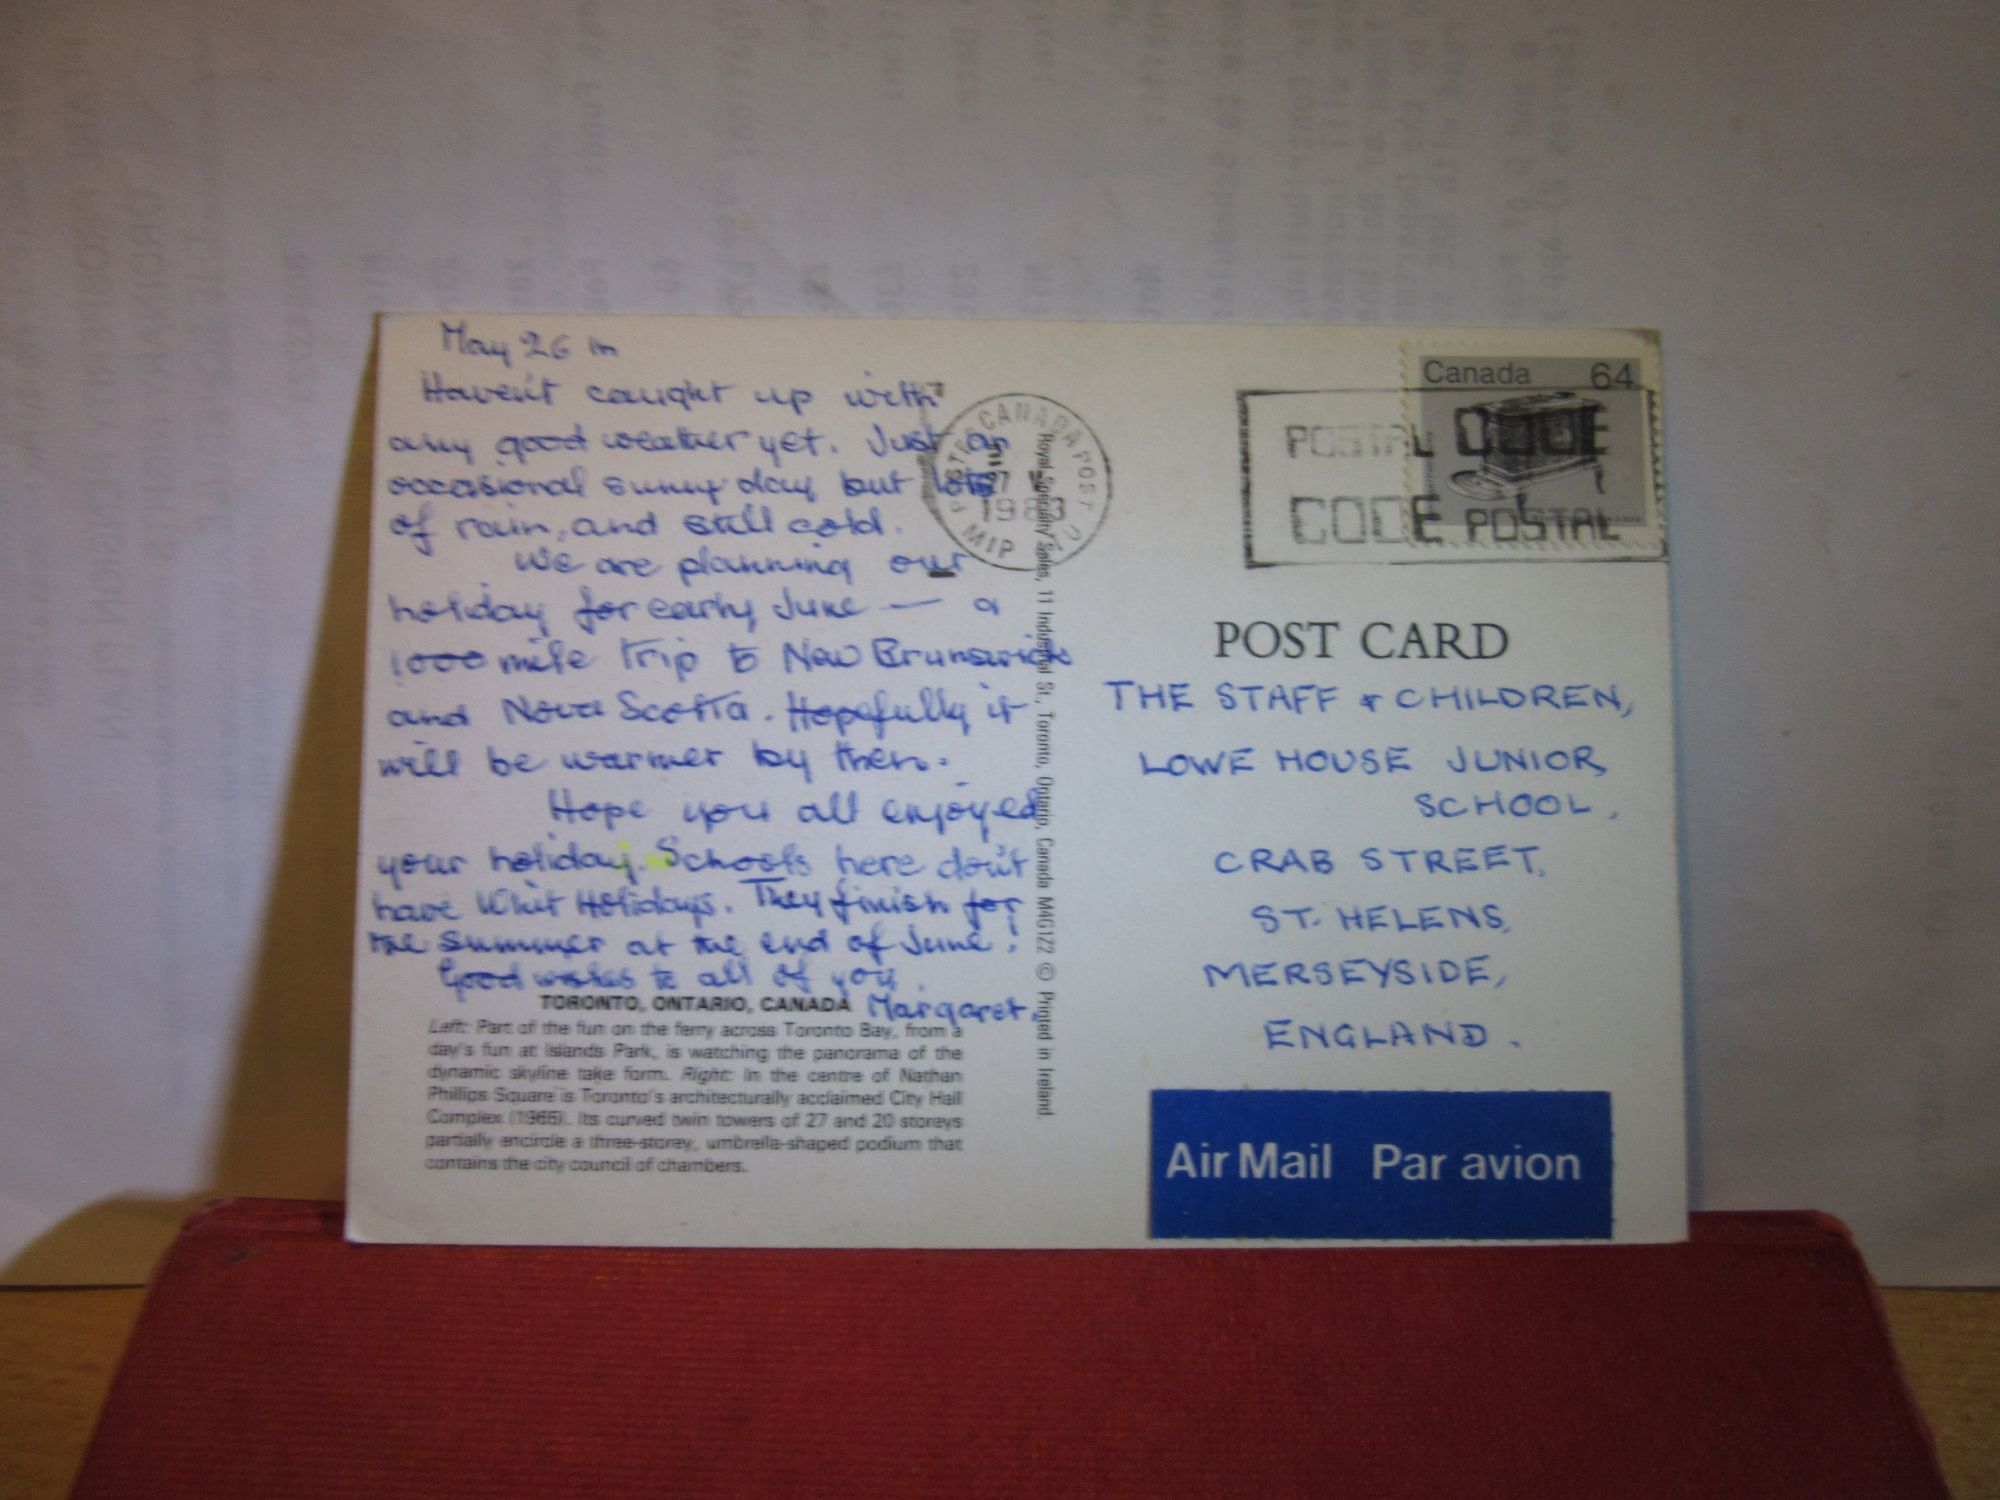 May 26th
Haven't caught up with
any good weather yet. Just an
occasional sunny day but lots
of rain, and still cold.
We are planning our
holiday for early June — a
1000 mile trip to New Brunswick
and Nova Scotia. Hopefully it
will be warmer by then.
Hope you all enjoyed
your holiday. Schools here don't
have Whit Holidays. They finish for
the summer at the end of June!
Good wishes to all of you.
Margaret.
TORONTO, ONTARIO, CANADA
Left: Part of the fun on the ferry across Toronto Bay, from a
day's fun at Islands Park, is watching the panorama of the
dynamic skyline take form. Right: In the centre of Nathan
Phillips Square is Toronto's architecturally acclaimed City Hall
Complex (1965). Its curved twin towers of 27 and 20 storeys
partially encircle a three-storey, umbrella-shaped podium that
contains the city council of chambers.
Royal Specialty Sales, 11 Industrial St., Toronto, Ontario, Canada M4G1Z2 © Printed in Ireland.
POSTES CANADA POST
27 V
1983
Canada 64
POSTAL CODE
CODE POSTAL
POST CARD
THE STAFF & CHILDREN,
LOWE HOUSE JUNIOR
SCHOOL,
CRAB STREET,
ST. HELENS,
MERSEYSIDE,
ENGLAND.
Air Mail Par avion